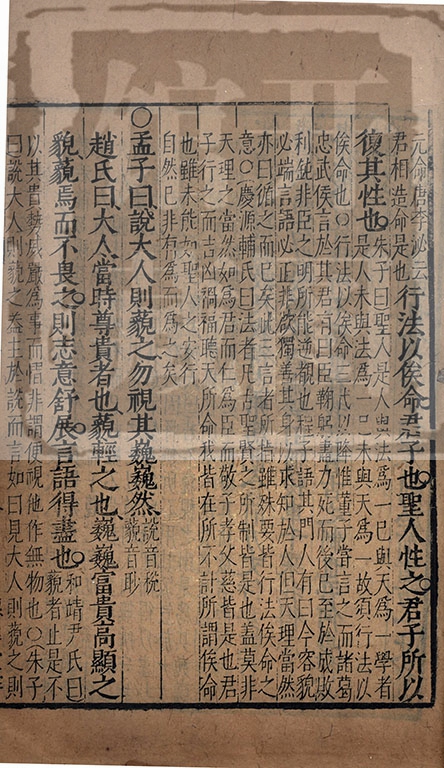 元命唐李泌云
君相造命是也行法以俟命君子也聖人性之君子所以
復其性也朱子曰聖人是人與法為一已與天為一學者
是人未與法為一已未與天為一故須行法以
俟命也〇行法以俟命三代以降惟董子嘗言之而諸葛
忠武侯言於其君有曰臣鞠躬盡力死而後已至於成敗
利鈍非臣之明所能逆覩也程子語其門人有曰今容貌
必端言語必正非欲獨善其身以求知於人但天理當然
亦曰循之而已矣此三言者所指雖殊要皆行法俟命之
意〇慶源輔氏曰法者凡古聖賢之所制皆是也蓋莫非
天理之當然如為君而仁為臣而敬子孝父慈皆是也君
子行之而吉凶禍福聽天所命我皆在所不計所謂俟命
也雖未能如聖人之安行
自然已非有為而為之矣
〇孟子曰說大人則藐之勿視其巍巍然說音稅
藐音眇
趙氏曰大人當時尊貴者也藐輕之也巍巍富貴高顯之
貌藐焉而不畏之則志意舒展言語得盡也和靖尹氏曰
藐者止是不
以其貴勢威嚴為事而胃非謂便視他作無物也〇朱子
曰說大人則藐之蓋主於說而言如曰見大人則藐之則